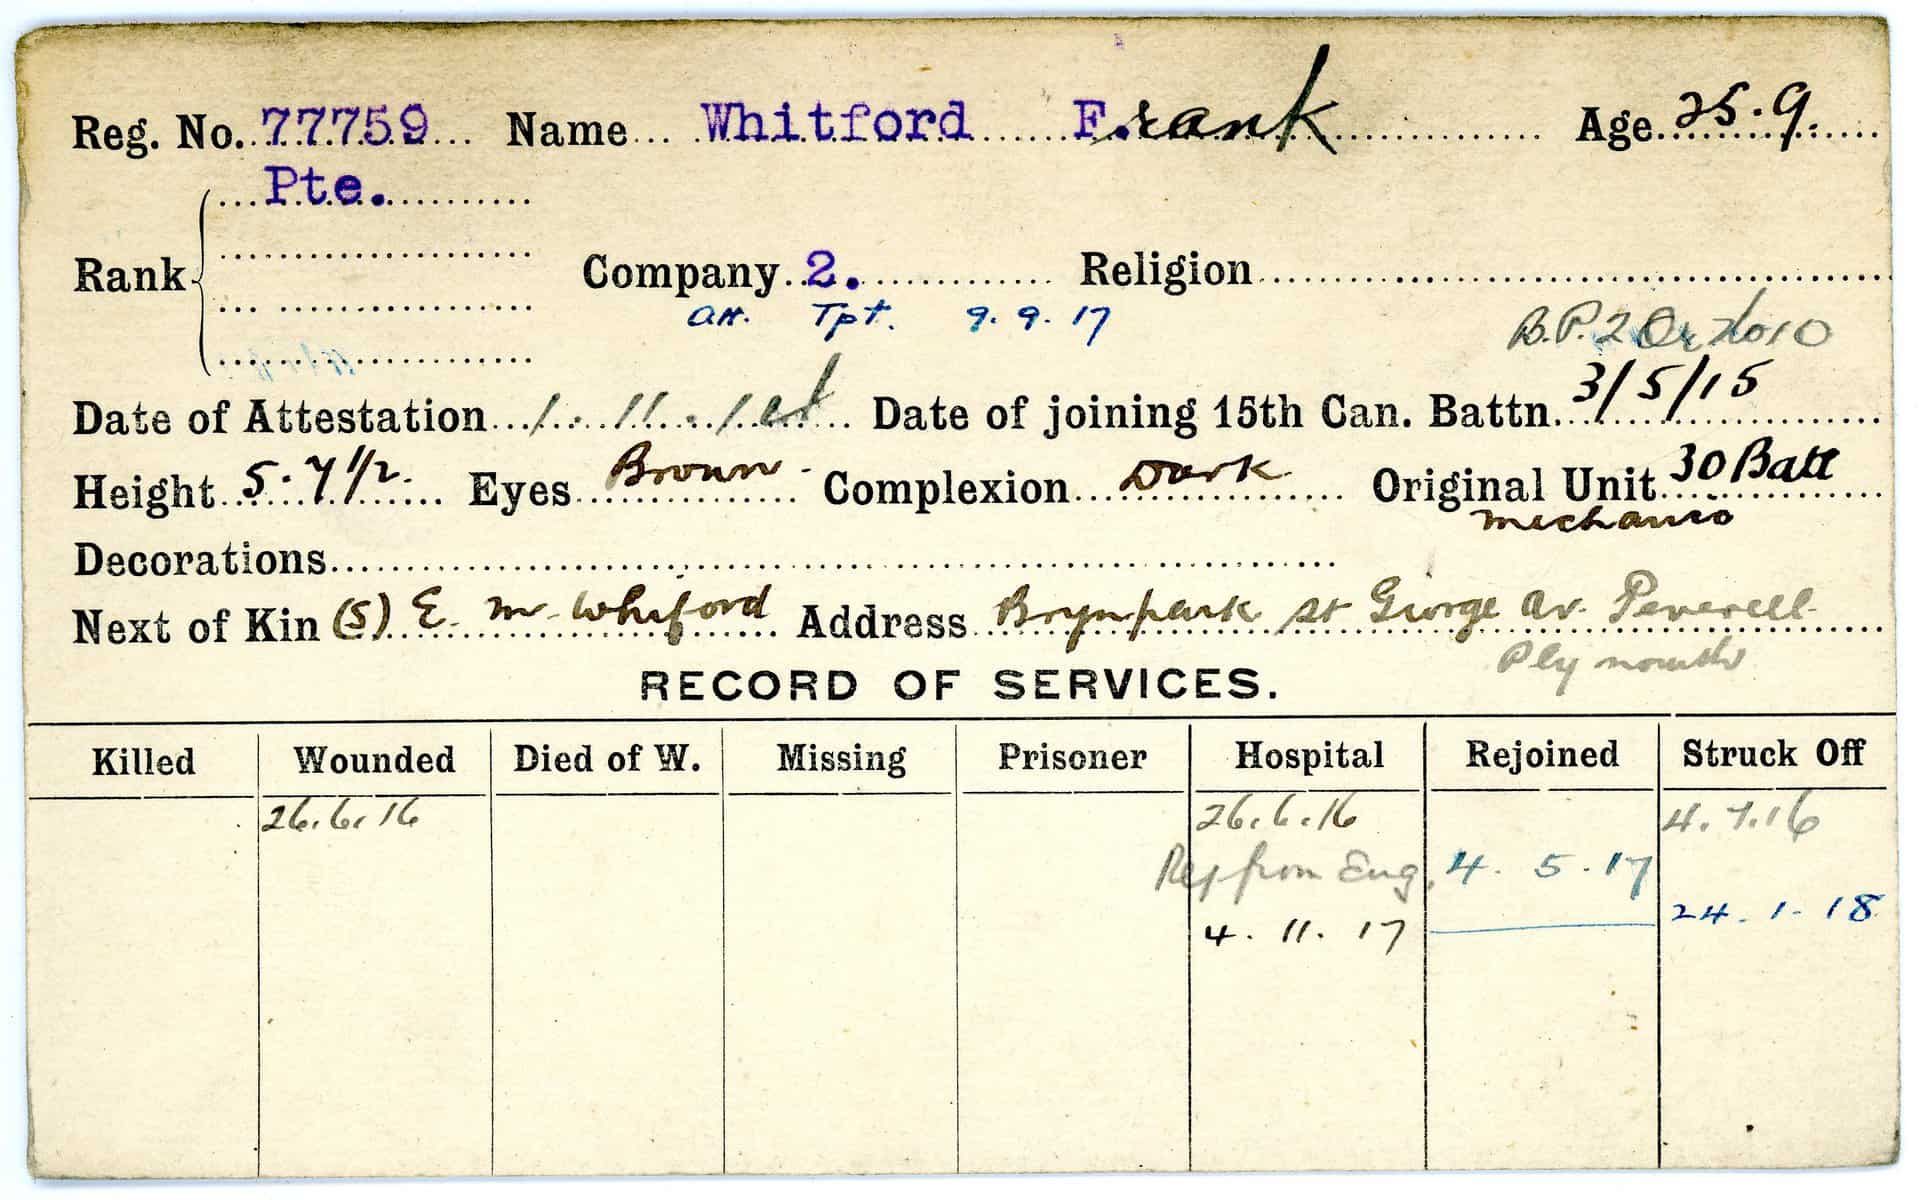 Reg. No. 77759 Name Whitford F.rank Age 25.9.
Pte.
Rank Company 2. Religion
Att. Tpt. 9.9.17
B.P. 2
Date of Attestation 1.11.14 Date of joining 15th Can. Battn. 3/5/15
Height 5.7 1/2. Eyes Brown Complexion Dark Original Unit 30 Batt
mechanic
Decorations
Next of Kin (S) E. M. Whiford Address Brynpark St George Av. Peverell
Plymouth
RECORD OF SERVICES.
Killed Wounded Died of W. Missing Prisoner Hospital Rejoined Struck Off
26.6.16 26.6.16 4.7.16
Rej from Eng. 4.5.17
4.11.17 24.1.18